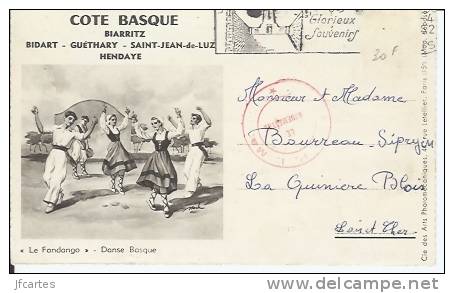 COTE BASQUE
BIARRITZ
BIDART - GUÉTHARY - SAINT-JEAN-de-LUZ
HENDAYE
Glorieux
Souvenirs
30 F
Monsieur et Madame
Bourreau-Sipryon
La Quinière Blois
Loir et Cher
« Le Fandango » - Danse Basque
Cie des Arts Photomécaniques, Rue Letellier, Paris
jfcartes
delcampe.net